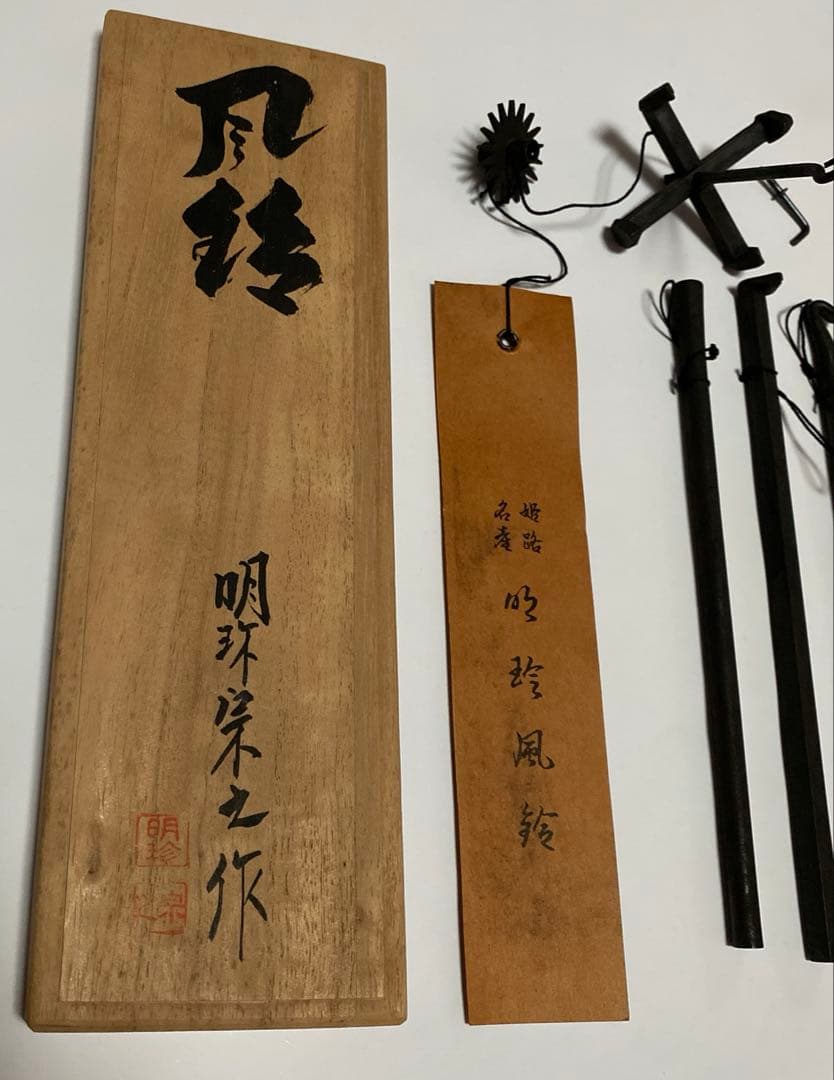 风鈴
明珎宗之作
明珍
宗之
姫路
名産
明珍風鈴